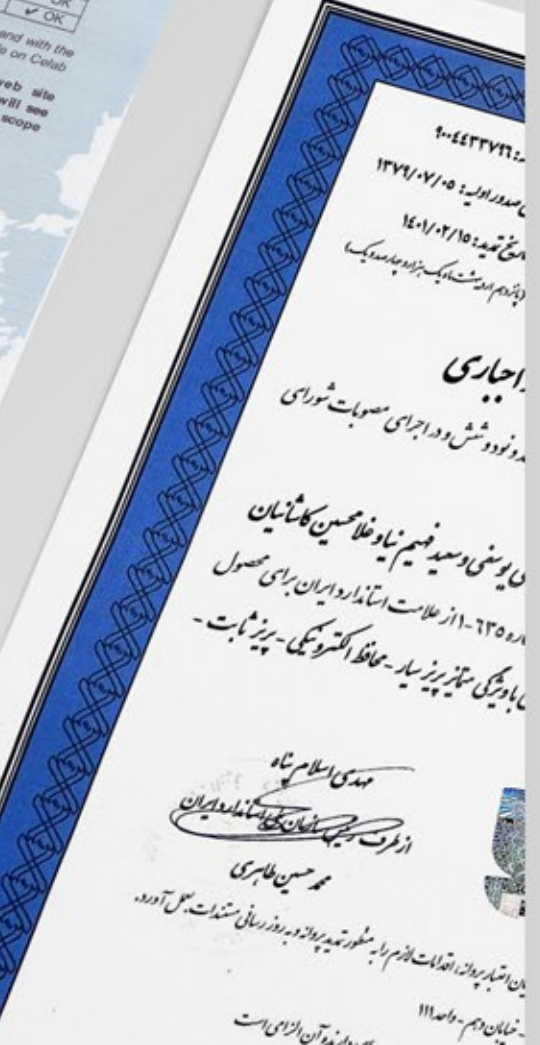 OK
✓ OK
and with the
e on Celab
web site
will see
scope
۹۰۰۴۴۳۳۷۹۶
صدور اولیه: ۱۳۷۹/۰۷/۰۵
تاریخ تمدید: ۱۴۰۱/۰۲/۱۵
(پانزدهم اردیبهشت ماه یک هزار و چهارصد و یک)
اجباری
نود و شش و در اجرای مصوبات شورای
یوسفی و سعید فهیم نیا و غلامحسین کاشانیان
۱-۶۳۵ از علامت استاندارد ایران برای محصول
با ویژگی متمایز پریز سیار - محافظ الکترونیکی - پریز ثابت -
مهدی اسلام پناه
از طرف رئیس سازمان ملی استاندارد ایران
محمد حسین طاهری
اعتبار پروانه، اقدامات لازم را به منظور تمدید پروانه و به روز رسانی مستندات بعمل آورد.
- خیابان دهم - واحد ۱۱۱
آن الزامی است